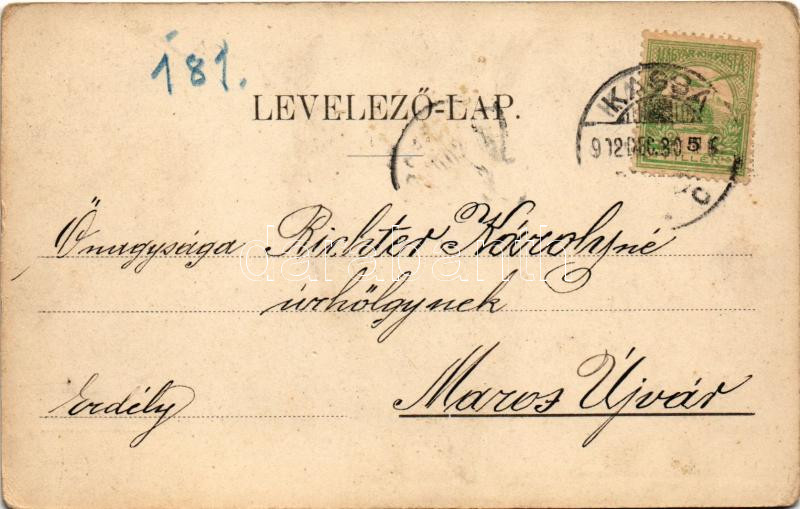 181.
MAGYAR KIR. POSTA
KASSA
5
912 DEC. 30
LEVELEZŐ-LAP.
Őnagysága Richter Károlyné
darabanth
úrhölgynek
Erdély Maros Újvár